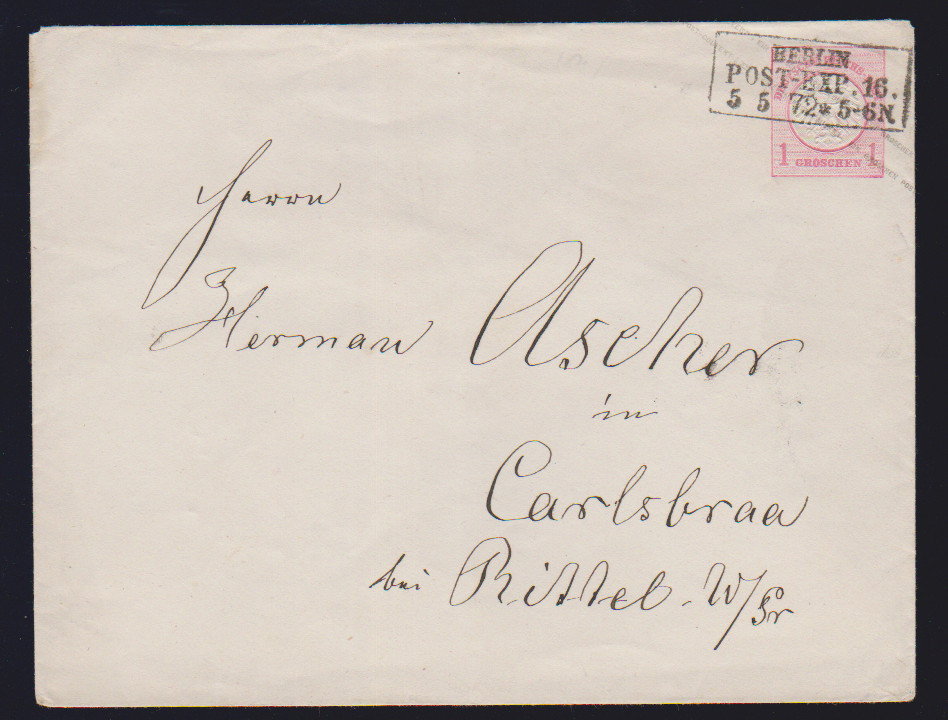 BERLIN
POST-EXP. 16.
5 5 72 * 5-6N
1 GROSCHEN 1
Herrn
Herman Ascher
in
Carlsbraa
bei Rittel W/Pr